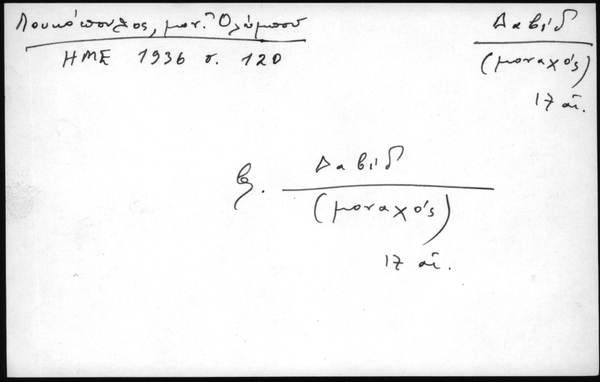 Λουκόπουλος, μον. Ὀλύμπου
ΗΜΕ 1936 σ. 120
Δαβίδ
(μοναχός)
17 αἰ.
βλ. Δαβίδ
(μοναχός)
17 αἰ.